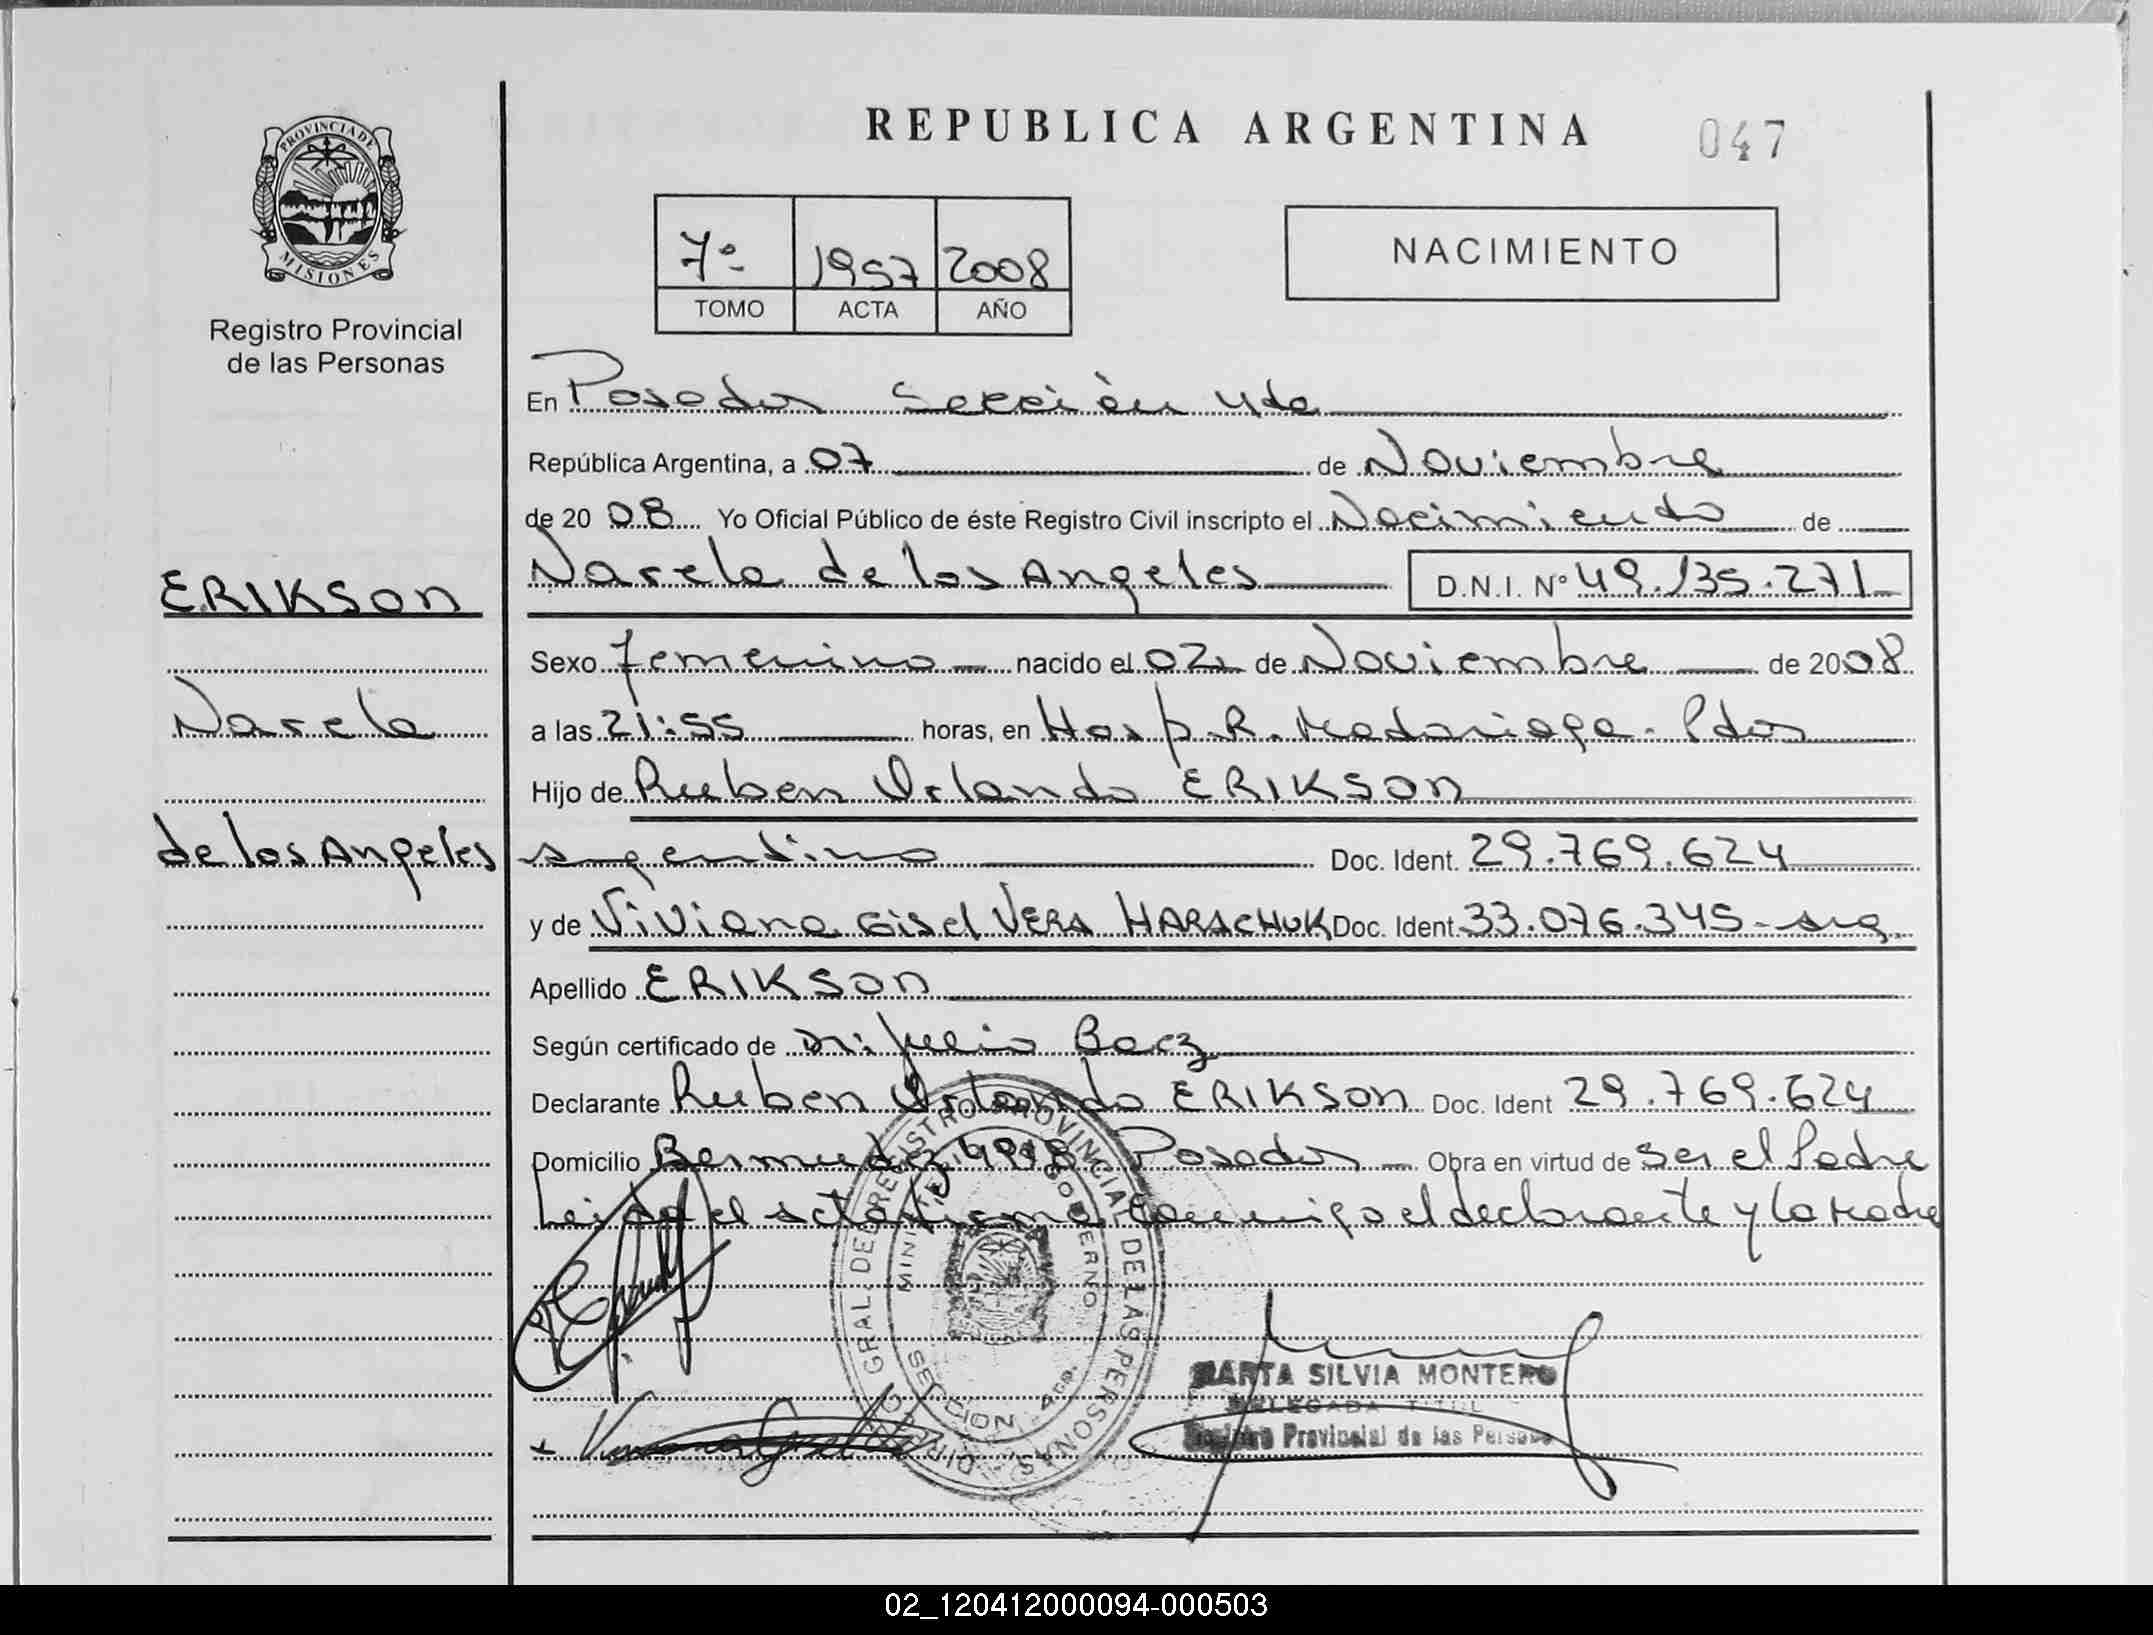 REPUBLICA ARGENTINA
047
PROVINCIA DE
MISIONES
Registro Provincial
de las Personas
7º 1957 2008
TOMO ACTA AÑO
NACIMIENTO
En Posadas Sección 4ta
República Argentina, a 07 de Noviembre
de 2008 Yo Oficial Público de éste Registro Civil inscripto el Nacimiento de
Narela de los Angeles D.N.I. Nº 49.135.271
ERIKSON
Sexo femenino nacido el 02 de Noviembre de 2008
Narela
a las 21:55 horas, en Hosp. R. Madariaga - Pdas
Hijo de Ruben Orlando ERIKSON
de los Angeles
argentino Doc. Ident. 29.769.624
y de Viviana Gisel VERA HARACHUK Doc. Ident. 33.076.345 - arg.
Apellido ERIKSON
Según certificado de Dr: Julio Baez
Declarante Ruben Orlando ERIKSON Doc. Ident 29.769.624
Domicilio Bermudez Posadas Obra en virtud de ser el Padre
Leida el acta firma conmigo el declarante y la Madre
DIRECC. GRAL. DE REGISTRO PROVINCIAL DE LAS PERSONAS
MINISTERIO DE GOBIERNO
SECCION 4ta.
MARTA SILVIA MONTERO
DELEGADA TITUL
Registro Provincial de las Personas
02_120412000094-000503